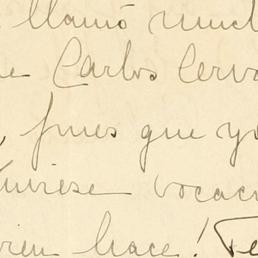 llamó much
e Carlos Cerv
, pues que y
tuviese vocac
bien hace! Te